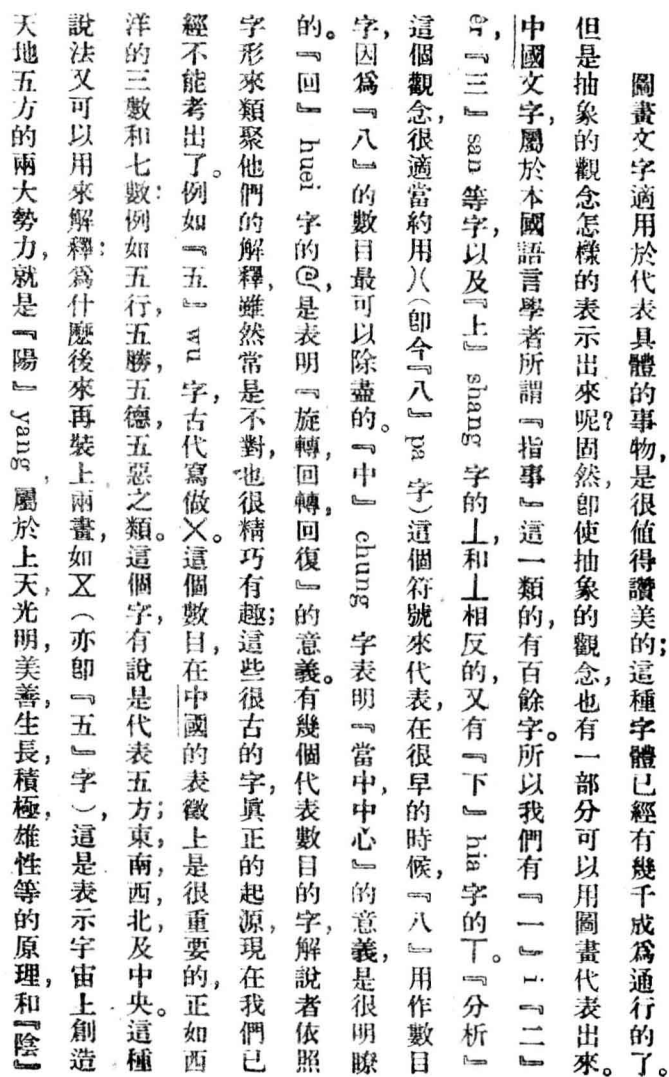 圖畫文字適用於代表具體的事物，是很値得讚美的；這種字體已經有幾千成爲通行的了。
但是抽象的觀念怎樣的表示出來呢？固然，卽使抽象的觀念，也有一部分可以用圖畫代表出來。
中國文字，屬於本國語言學者所謂『指事』這一類的，有百餘字。所以我們有『一』i『二』
êr『三』san 等字，以及『上』shang 字的丄，和丄相反的，又有『下』hia 字的丅。『分析』
這個觀念，很適當約用八（卽今『八』pa 字）這個符號來代表，在很早的時候，『八』用作數目
字，因爲『八』的數目最可以除盡的。『中』chung 字表明『當中，中心』的意義，是很明瞭
的。『回』huei 字的@，是表明『旋轉，回轉，回復』的意義。有幾個代表數目的字，解說者依照
字形來類聚他們的解釋，雖然常是不對，也很精巧有趣；這些很古的字，眞正的起源，現在我們已
經不能考出了。例如『五』wu 字，古代寫做㐅。這個數目，在中國的表徵上是很重要的，正如西
洋的三數和七數：例如五行，五勝，五德，五惡之類。這個字，有說是代表五方；東，南，西，北，及中央。這種
說法又可以用來解釋；爲什麼後來再裝上兩畫，如㐅（亦卽『五』字），這是表示宇宙上創造
天地五方的兩大勢力，就是『陽』yang，屬於上天，光明，美善，生長，積極，雄性等的原理，和『陰』